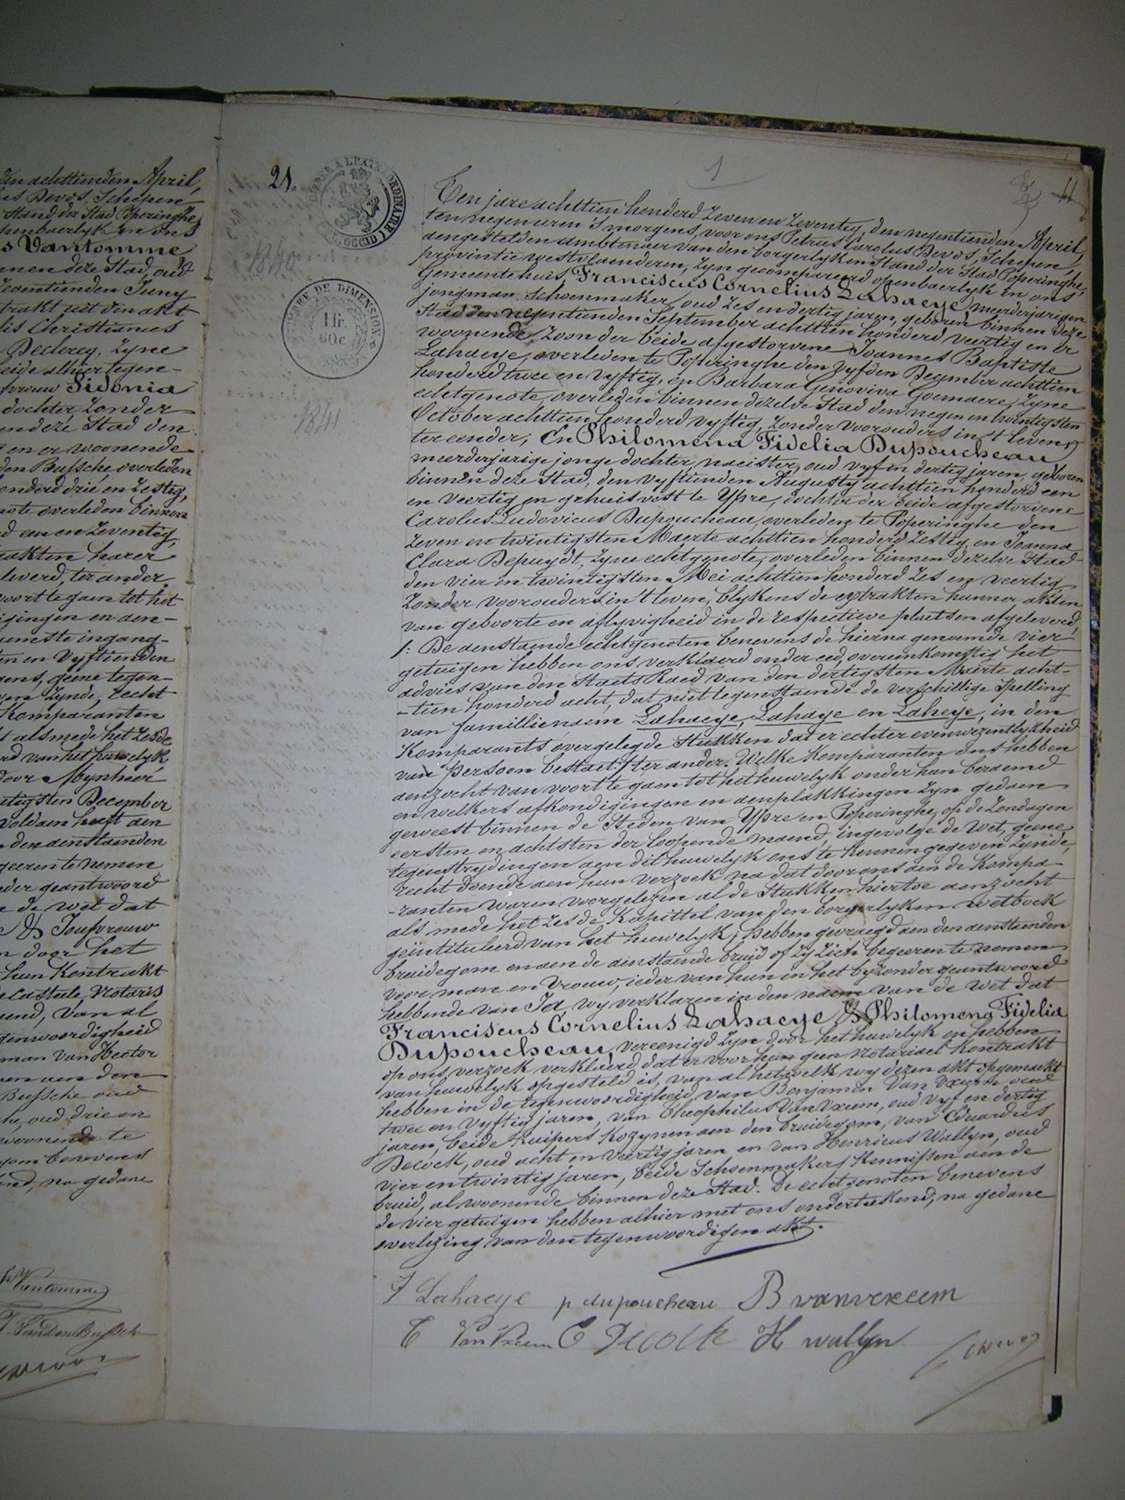 den achttienden April,
us Devos, Schepen
stand der Stad Poperinghe,
openbaerlyk en ons
s Vantomme
nnen deze Stad, oud
zventienden Juny
trakt uit den akt
lis Christianus
Declercq, zyne
beide alhier tegen-
frouw Sidonia
dochter zonder
en deze Stad den
g en er woonende
den Bussche overleden
honderd drie en zestig,
note overleden binnen
d een en zeventig
trakten haerer
leverd, ter ander
voort te gaen tot het
igingen en aen-
ste ingang-
en en vyftienden
gens, geene tegen-
ven zynde, recht
Komparanten
t als mede het zesde
rd van het huwelyk,
door Mynheer
ntigsten December
voldaen heeft aen
den aenstaenden
geeren te nemen
eder geantwoord
n de wet dat
& Joufvrouw
n door het
hun Kontrakt
Casteele, Notaris
end, van al
genwoordigheid
man van Hector
en aen den
Bussche oud
he, oud drie en
woonende te
gom benevens
end, na gedane
Vantomme
VandenBussche
Devos
21.
1
44
1 fr.
60 c.
1840
1841
Een jare achttien honderd zeven en zeventig, den negentienden April,
ten negen uren 's morgens, voor ons Petrus Carolus Devos, Schepen,
aengestelden ambtenaer van den borgerlyken stand der Stad Poperinghe,
provintie westvlaenderen, zyn gecompareerd openbaerlyk in ons
Gemeentehuis, Franciscus Cornelius Lahaeye, meerderjarigen
jongman, schoenmaker, oud zes en dertig jaren, geboren binnen deze
Stad den negentienden September achttien honderd veertig en er
woonende, Zoon der beide afgestorvene Joannes Baptiste
Lahaeye, overleden te Poperinghe den vyfden December achttien
honderd twee en vyftig, en Barbara Genoviva Goemaere, zyne
echtgenote, overleden binnen dezelve Stad den negen en twintigsten
October achttien honderd vyftig, zonder voorouders in 't leven,
ter eender, En Philomena Fidelia Dupoucheau,
meerderjarige jonge dochter, naeister, oud vyf en dertig jaren, geboren
binnen deze Stad, den vyftienden Augusty achttien honderd een
en veertig en gehuisvest te Ypre, dochter der beide afgestorvene
Carolus Ludovicus Dupoucheau, overleden te Poperinghe den
zeven en twintigsten Maerte achttien honderd zestig, en Joanna
Clara Depuydt, zyne echtgenote, overleden binnen dezelve Stad
den vier en twintigsten Mei achttien honderd zes en veertig
zonder voorouders in 't leven, blykens de extrakten hunner akten
van geboorte en aflyvigheid in de respectieve plaetsen afgeleverd,
/: De aenstaende echtgenoten benevens de hierna genoemde vier
getuigen hebben ons verklaerd onder eed, overeenkomstig het
advies van den Staets Raed van den dertigsten Maerte acht-
-tien honderd acht, dat niet tegenstaende de verschillige spelling
van familienaem Lahaeye, Lahaye en Laheye, in den
Komparants overgelegde Stukken dat er echter evenwezentlykheid
van persoon bestaet :/ ter ander. Welke Komparanten ons hebben
aenzocht van voort te gaen tot het huwelyk onder hun beraemd
en welkers afkondigingen en aenplakkingen zyn gedaen
geweest binnen de Steden van Ypre en Poperinghe, op de Zondagen
eersten en achtsten der loopende maend, ingevolge de Wet, geene
tegenstrydingen aen dit huwelyk ons te kennen gegeven zynde,
recht doende aen hun verzoek na dat door ons aen de Kompa-
-ranten waren voorgelezen al de Stukken hiertoe aenzocht
als mede het zesde Kapittel van den borgerlyken wetboek
geïntituleerd van het huwelyk; hebben gevraegd aen den aenstaenden
bruidegom en aen de aenstaende bruid of zy zich begeeren te nemen
voor man en vrouw, ieder van hun en het byzonder geantwoord
hebbende van Ja, wy verklaren in den naem van de wet dat
Franciscus Cornelius Lahaeye & Philomena Fidelia
Dupoucheau, vereenigd zyn door het huwelyk en hebben
op ons verzoek verklaerd dat er voor hun geen Notariael Kontrakt
van huwelyk opgesteld is, van al hetwelk wy dezen akt opgemaekt
hebben in de tegenwoordigheid van Benjamen Van Vreem oud
twee en vyftig jaren, van Theophilus Van Vreem, oud vyf en dertig
jaren, beide kuipers Kozynen aen den bruidegom, van Eduardus
Decock, oud acht en veertig jaren en van Henricus Wallyn, oud
vier en twintig jaren, beide Schoenmakers, Kennissen aen de
bruid, al woonende binnen deze Stad. De echtgenoten benevens
de vier getuigen hebben alhier met ons onderteekend, na gedane
overlezing van den tegenwoordigen akt.
F Lahaeye p dupoucheau B vanvreem
T Van Vreem E Decock H wallyn Devos